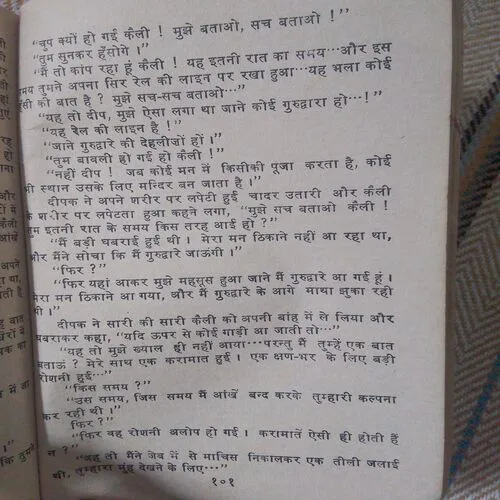 "चुप क्यों हो गई कैली ! मुझे बताओ, सच बताओ !"
"तुम सुनकर हँसोगे ।"
"मैं तो कांप रहा हूं कैली ! यह इतनी रात का समय···और इस
समय तुमने अपना सिर रेल की लाइन पर रखा हुआ···यह भला कोई
हँसी की बात है ? मुझे सच-सच बताओ···"
"यह तो दीप, मुझे ऐसा लगा था जाने कोई गुरुद्वारा हो···!"
"यह रेल की लाइन है !"
"जाने गुरुद्वारे की देहलीज़ों हों ।"
"तुम बावली हो गई हो कैली !"
"नहीं दीप ! जब कोई मन में किसीकी पूजा करता है, कोई
भी स्थान उसके लिए मन्दिर बन जाता है ।"
दीपक ने अपने शरीर पर लपेटी हुई चादर उतारी और कैली
के शरीर पर लपेटता हुआ कहने लगा, "मुझे सच बताओ कैली !
तुम इतनी रात के समय किस तरह आई हो ?"
"मैं बड़ी घबराई हुई थी । मेरा मन ठिकाने नहीं आ रहा था,
और मैंने सोचा कि मैं गुरुद्वारे जाऊंगी ।"
"फिर ?"
"फिर यहां आकर मुझे महसूस हुआ जाने मैं गुरुद्वारे आ गई हूं ।
मेरा मन ठिकाने आ गया, और मैं गुरुद्वारे के आगे माथा झुका रही
थी ।"
दीपक ने सारी की सारी कैली को अपनी बांह में ले लिया और
घबराकर कहा, "यदि ऊपर से कोई गाड़ी आ जाती तो···"
"यह तो मुझे ख्याल ही नहीं आया···परन्तु मैं तुम्हें एक बात
बताऊं ? मेरे साथ एक करामात हुई । एक क्षण-भर के लिए बड़ी
रोशनी हुई···"
"किस समय ?"
"उस समय, जिस समय मैं आंखें बन्द करके तुम्हारी कल्पना
कर रही थी ।"
फिर ?"
"फिर वह रोशनी अलोप हो गई । करामातें ऐसी ही होती हैं
न ?"
"वह तो मैंने जेब में से माचिस निकालकर एक तीली जलाई
थी, तुम्हारा मुंह देखने के लिए···"
१०१